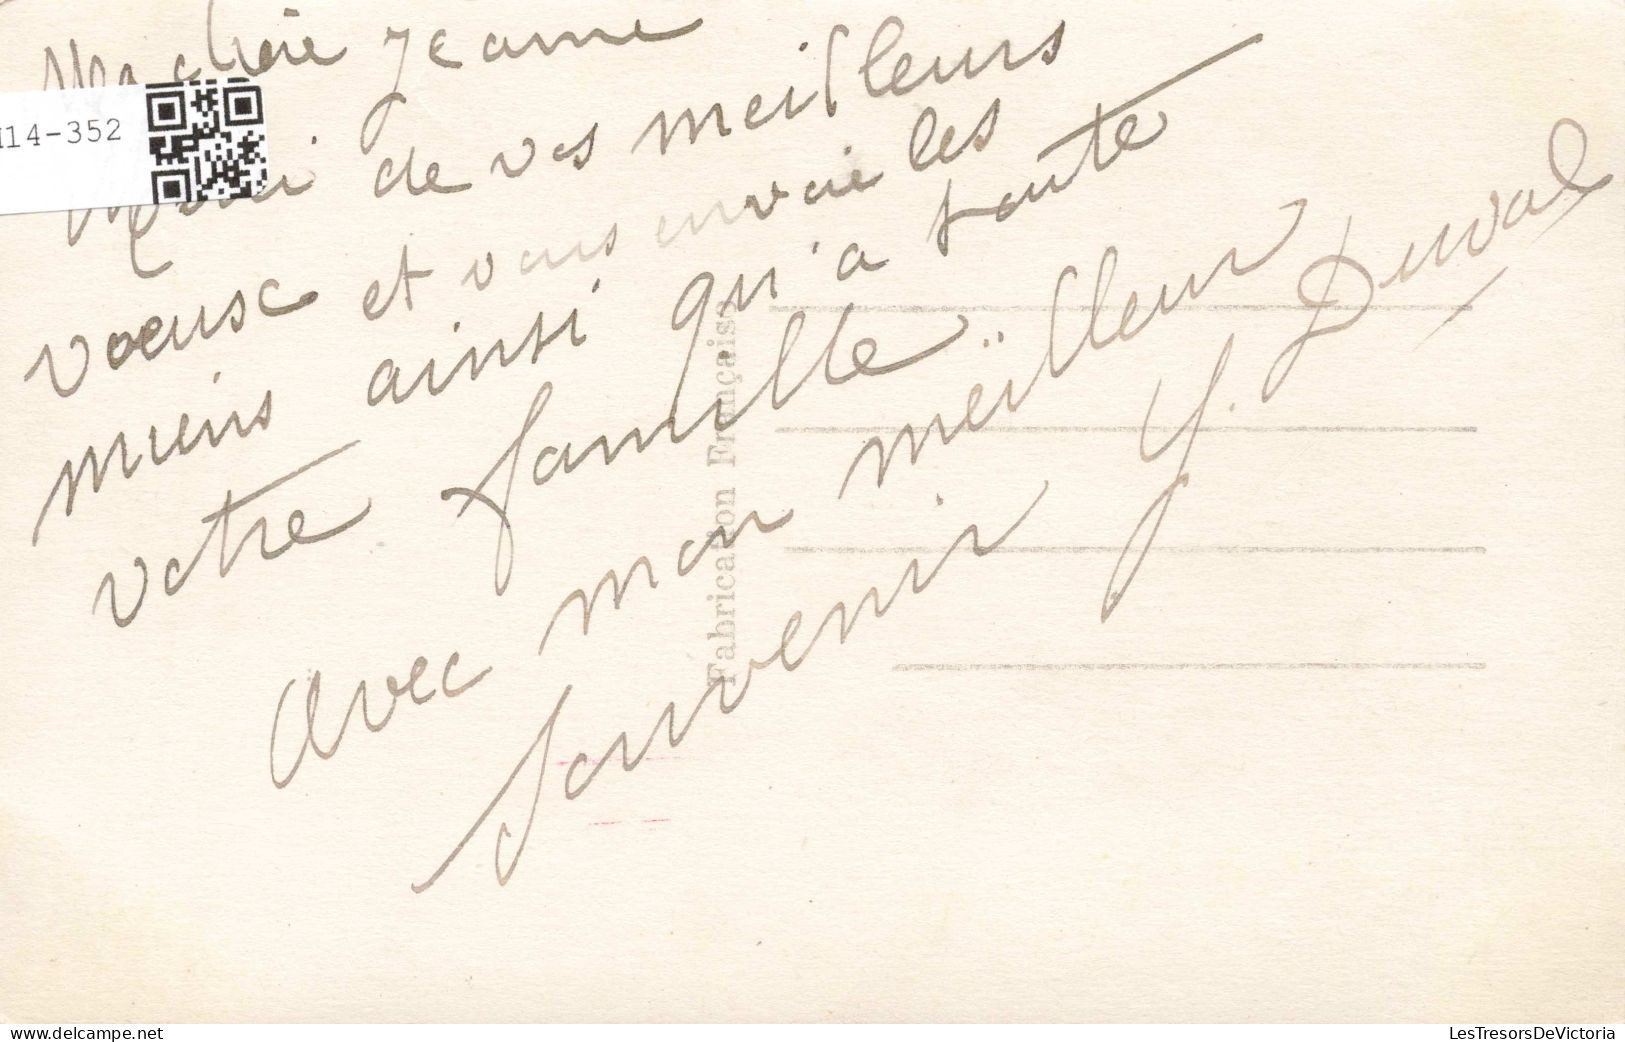 Ma chère Jeanne
Merci de vos meilleurs
voeux et vous envoie les
miens ainsi qu'a toute
votre famille..
Avec mon meilleur
souvenir Y. Duval
14-352
Fabrication Française
LesTresorsDeVictoria
delcampe.net